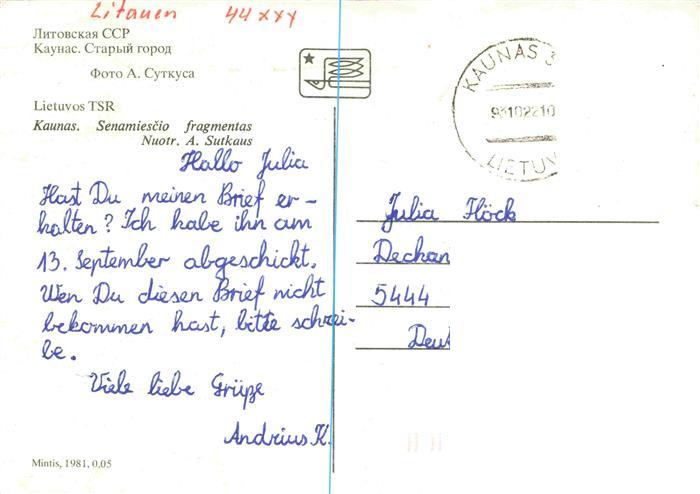 Litauen 44xxy
Литовская ССР
Каунас. Старый город
Фото А. Суткуса
Lietuvos TSR
Kaunas. Senamiesčio fragmentas
Nuotr. A. Sutkaus
Hallo Julia
Hast Du meinen Brief er-
halten? Ich habe ihn am
13. September abgeschickt.
Wen Du diesen Brief nicht
bekommen hast, bitte schrei-
be.
Viele liebe Grüße
Andrius K.
Mintis, 1981, 0,05
KAUNAS 3
LIETUV
Julia Flöck
Dechan
5444
Deut